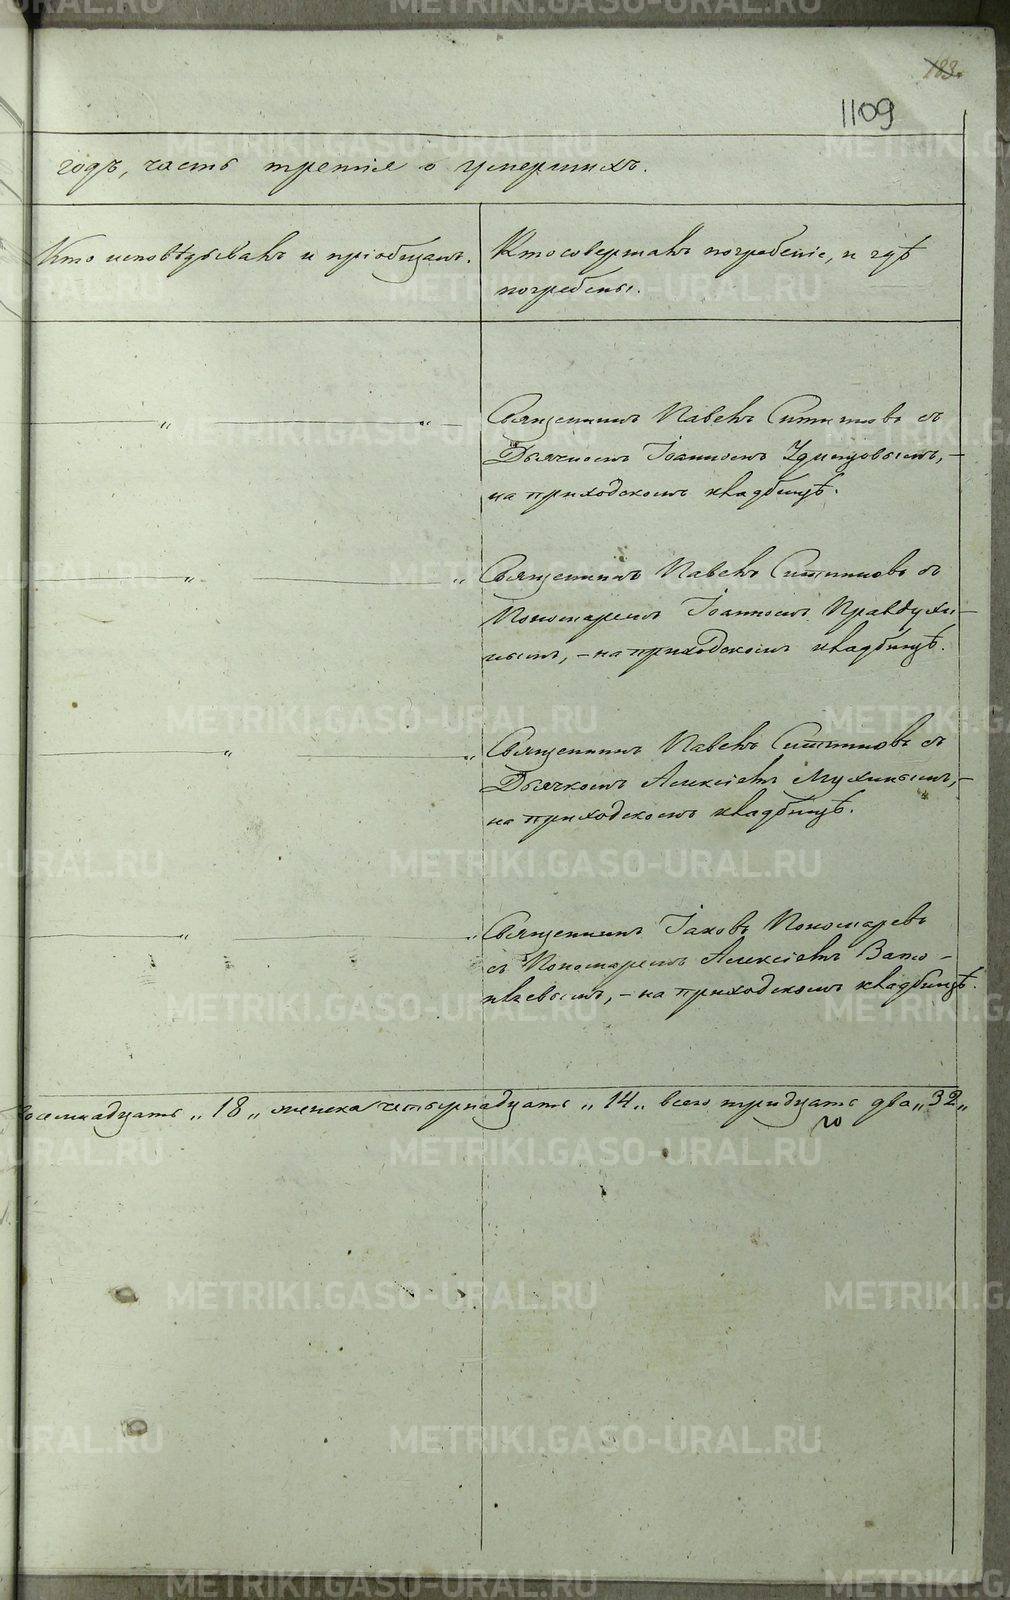 183.
1109
годъ, часть третія о умершихъ.
Кто исповѣдывалъ и пріобщалъ.
Кто совершалъ погребеніе, и гдѣ
погребены.
„ „ Священникъ Павелъ Ситниковъ съ
Дьячкомъ Іоанномъ Удинцовымъ, –
на приходскомъ кладбищѣ.
„ „ Священникъ Павелъ Ситниковъ съ
Пономаремъ Іоанномъ Правдухи–
нымъ, – на приходскомъ кладбищѣ.
„ „ Священникъ Павелъ Ситниковъ съ
Дьячкомъ Алексіемъ Мухинымъ, –
на приходскомъ кладбищѣ.
„ „ Священникъ Іаковъ Пономаревъ
съ Пономаремъ Алексіемъ
на приходскомъ кладбищѣ.
восемнадцать „18„ женска четырнадцать „14„ всего тридцать два „32„
го
METRIKI.GASO-URAL.RU